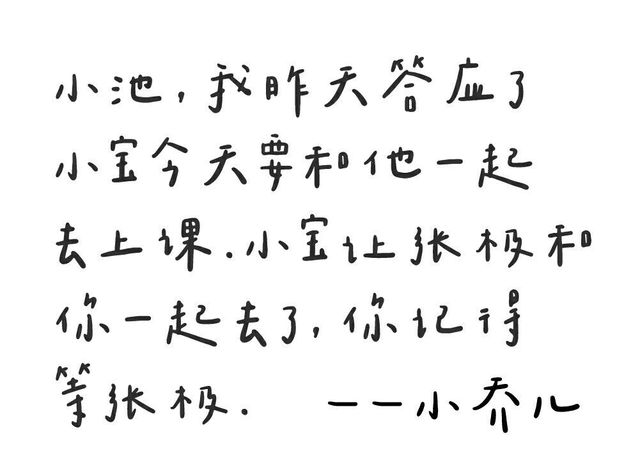 小池，我昨天答应了
小宝今天要和他一起
去上课.小宝让张极和
你一起去了，你记得
等张极. ——小乔儿